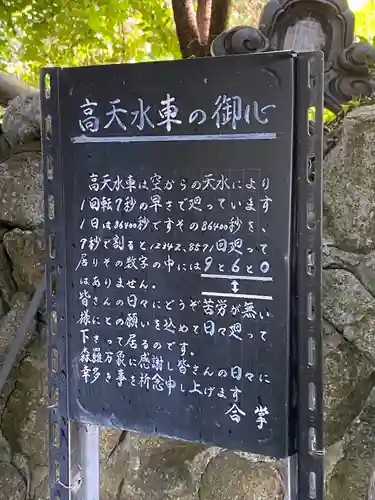 高天水車の御心
高天水車は空からの天水により
1回転7秒の早さで廻っています
1日は86400秒ですその86400秒を、
7秒で割ると12342.8571回廻って
居りその数字の中には9と6と0
はありません。
皆さんの日々にどうぞ苦労が無い
様にとの願いを込めて日々廻って
下さって居るのです。
森羅万象に感謝し皆さんの日々に
幸多き事を祈念申し上げます
合掌